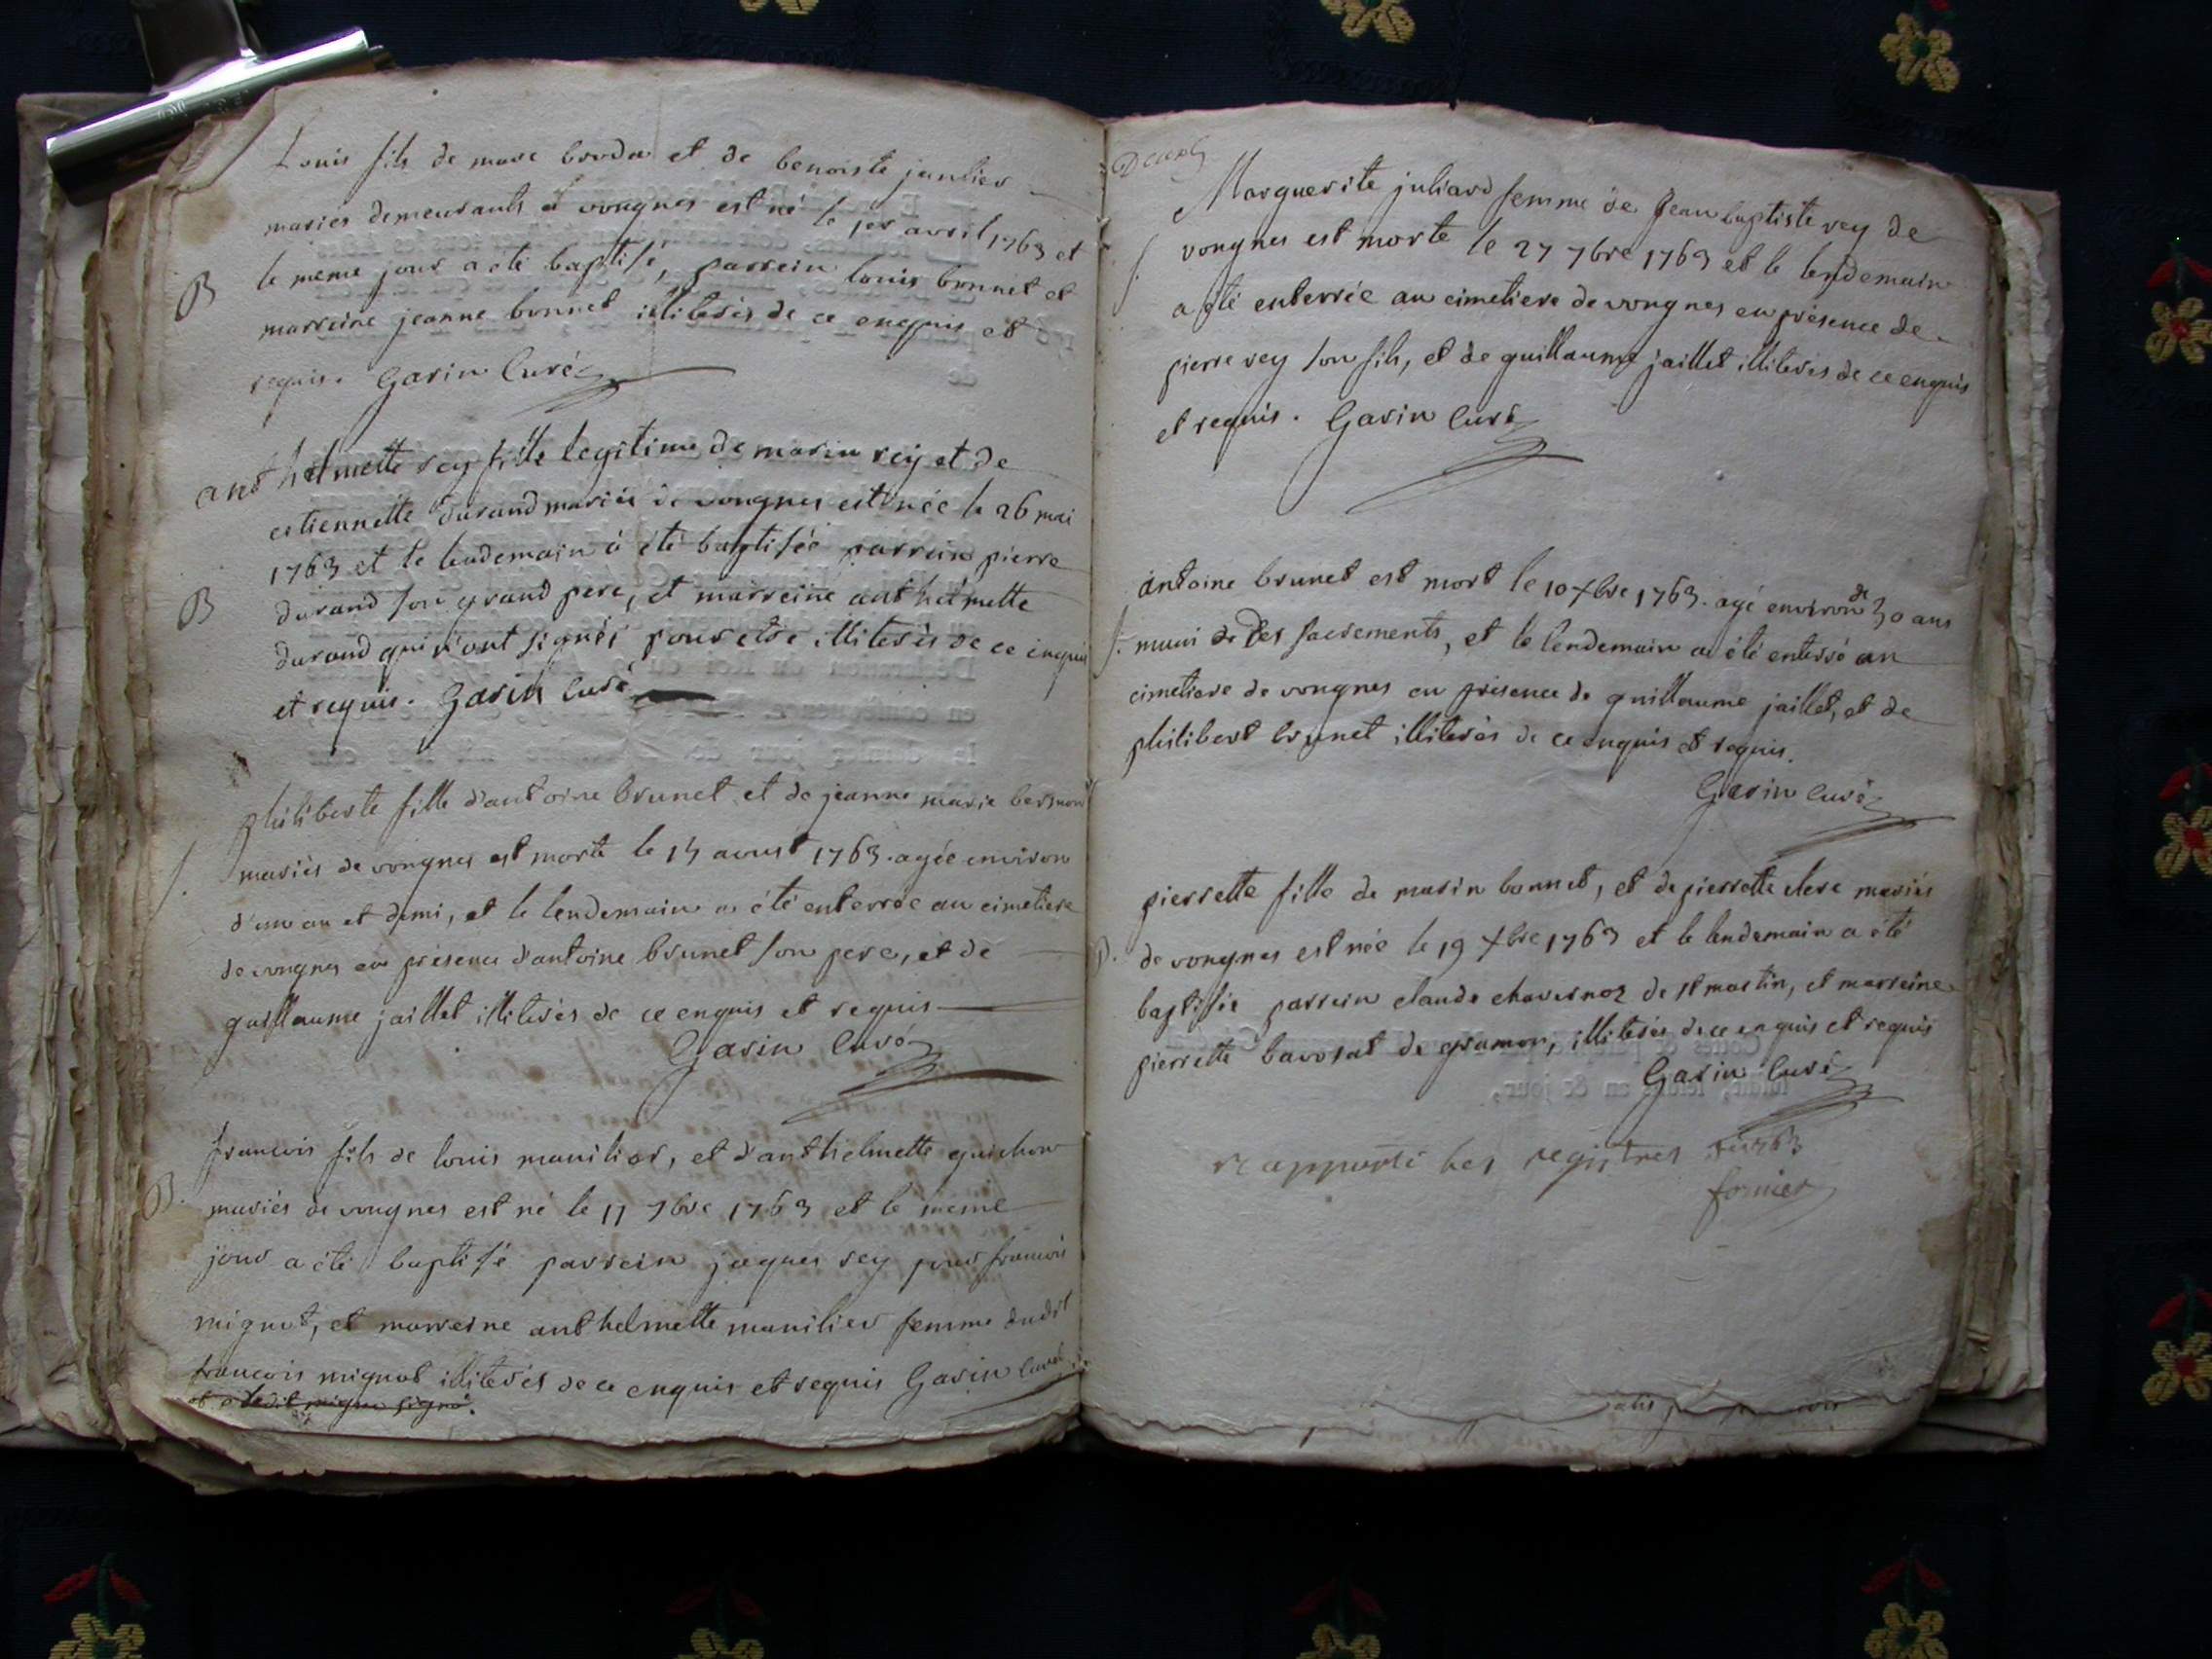 Louis fils de marc et de benoiste janlier
mariés demeurants à vongnes est né le 1er avril 1763 et
B le meme jour a été baptisé, parrein louis bonnet et
marreine jeanne bonnet illiterés de ce enquis et
requis. Garin Curé
anthelmette rey fille legitime de marin reÿ et de
estiennette durand mariés de vongnes est née le 26 mai
1763 et le lendemain a été baptisée parrein pierre
B durand son grand pere, et marreine anthelmette
durand qui n'ont signés pour etre illiterés de ce enquis
et requis. Garin Curé
philiberte fille d'antoine brunet et de jeanne marie
mariés de vongnes est morte le 14 aoust 1763. agée environ
d'un an et demi, et le lendemain a été enterrée au cimetiere
de vongnes en présence d'antoine brunet son pere, et de
guillaume jaillet illiterés de ce enquis et requis
Garin Curé
francois fils de louis manilier, et d'anthelmette guichon
B. mariés de vongnes est né le 11 7bre 1763 et le meme
jour a été baptisé parrein jaques rey pour francois
mignot, et marreine anthelmette manilier femme dudit
francois mignot illiterés de ce enquis et requis Garin Curé
Marguerite juliard femme de Jean baptiste rey de
vongnes est morte le 27 7bre 1763 et le lendemain
a été enterrée au cimetiere de vongnes en présence de
pierre rey son fils, et de guillaume jaillet illiterés de ce enquis
et requis. Garin Curé
antoine brunet est mort le 10 Xbre 1763. agé environ de 30 ans
muni de ses sacrements, et le lendemain a été enterré au
cimetiere de vongnes en présence de guillaume jaillet, et de
philibert brunet illiterés de ce enquis et requis.
Garin Curé
pierrette fille de marin bonnet, et de pierrette clerc mariés
de vongnes est née le 19 Xbre 1763 et le lendemain a été
baptisée parrein claude chavernoz de st martin, et marreine
pierrette bavosat de gramon, illiterés de ce enquis et requis
Garin Curé
rapporté les registres